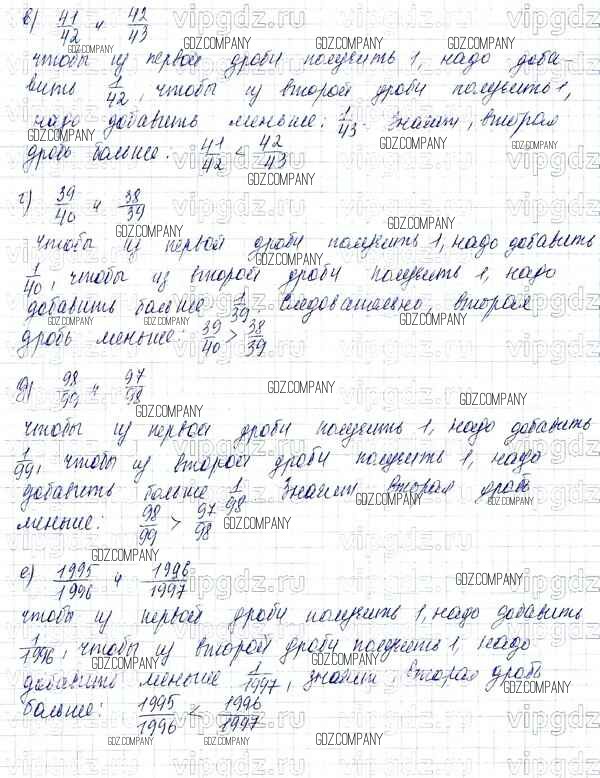 в) 41/42 и 42/43
чтобы из первой дроби получить 1, надо доба-
вить 1/42, чтобы из второй дроби получить 1,
надо добавить меньше: 1/43. Значит, вторая
дробь больше: 41/42 < 42/43
г) 39/40 и 38/39
чтобы из первой дроби получить 1, надо добавить
1/40, чтобы из второй дроби получить 1, надо
добавить больше 1/39. Следовательно, вторая
дробь меньше: 39/40 > 38/39
д) 98/99 и 97/98
чтобы из первой дроби получить 1, надо добавить
1/99, чтобы из второй дроби получить 1, надо
добавить больше 1/98. Значит вторая дробь
меньше: 98/99 > 97/98
е) 1995/1996 и 1996/1997
чтобы из первой дроби получить 1, надо добавить
1/1996, чтобы из второй дроби получить 1, надо
добавить меньше 1/1997, значит, вторая дробь
больше: 1995/1996 < 1996/1997
GDZ.COMPANY
vipgdz.ru